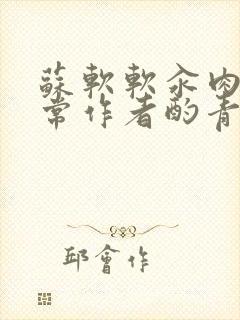 蘇軟軟汆肉
常作者酌青
邱會作